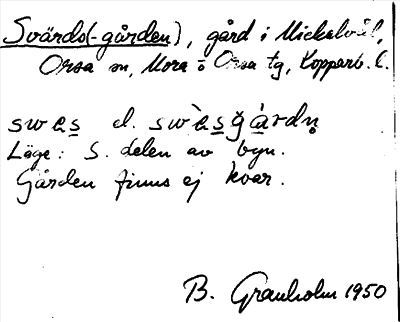 Svärds(-gården), gård i Mickelvål,
Orsa sn, Mora o Orsa tg, Kopparb. l.
swes el. swèsgàrdn
Läge: S. delen av byn.
Gården finns ej kvar.
B. Granholm 1950